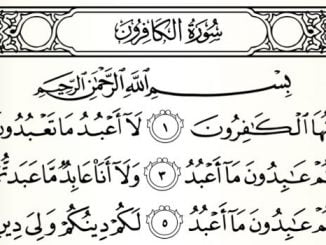 سُورَةُ الكَافِرُونَ
بِسْمِ اللَّهِ الرَّحْمَٰنِ الرَّحِيمِ
ـهَا الْكَٰفِرُونَ ١ لَآ أَعْبُدُ مَا تَعْبُدُونَ
ـمْ عَٰبِدُونَ مَآ أَعْبُدُ ٣ وَلَآ أَنَا۠ عَابِدٌ مَّا عَبَدتُّ
ـمْ عَٰبِدُونَ مَآ أَعْبُدُ ٥ لَكُمْ دِينُكُمْ وَلِيَ دِينِ